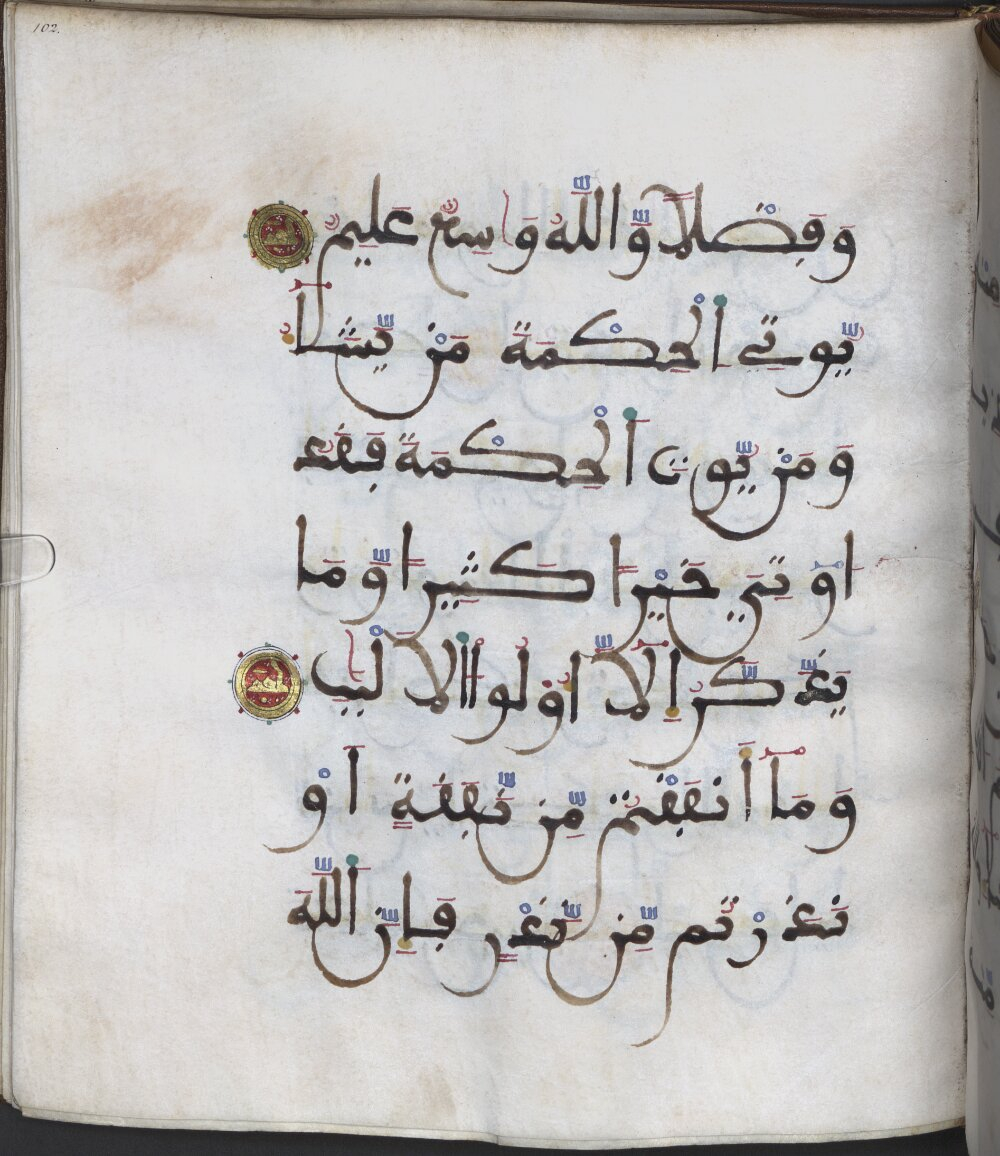 102.
وَفَضْلًا وَّاللَّهُ وَاسِعٌ عَلِيمٌ
يُّوتِي اِلْحِكْمَةَ مَنْ يَّشَآءُ
وَمَنْ يُّوتَ اَلْحِكْمَةَ فَقَدُ
اوتِيَ خَيْراً كَثِيراً وَّمَا
يَذَّكَّرُ إِلَّآ أُوْلُوا اْلَالْبَٰبِ
وَمَآ أَنفَقْتُم مِّن نَّفَقَةٍ اَوْ
نَذَرْتُم مِّن نَّذْرٍ فَإِنَّ اَللَّهَ